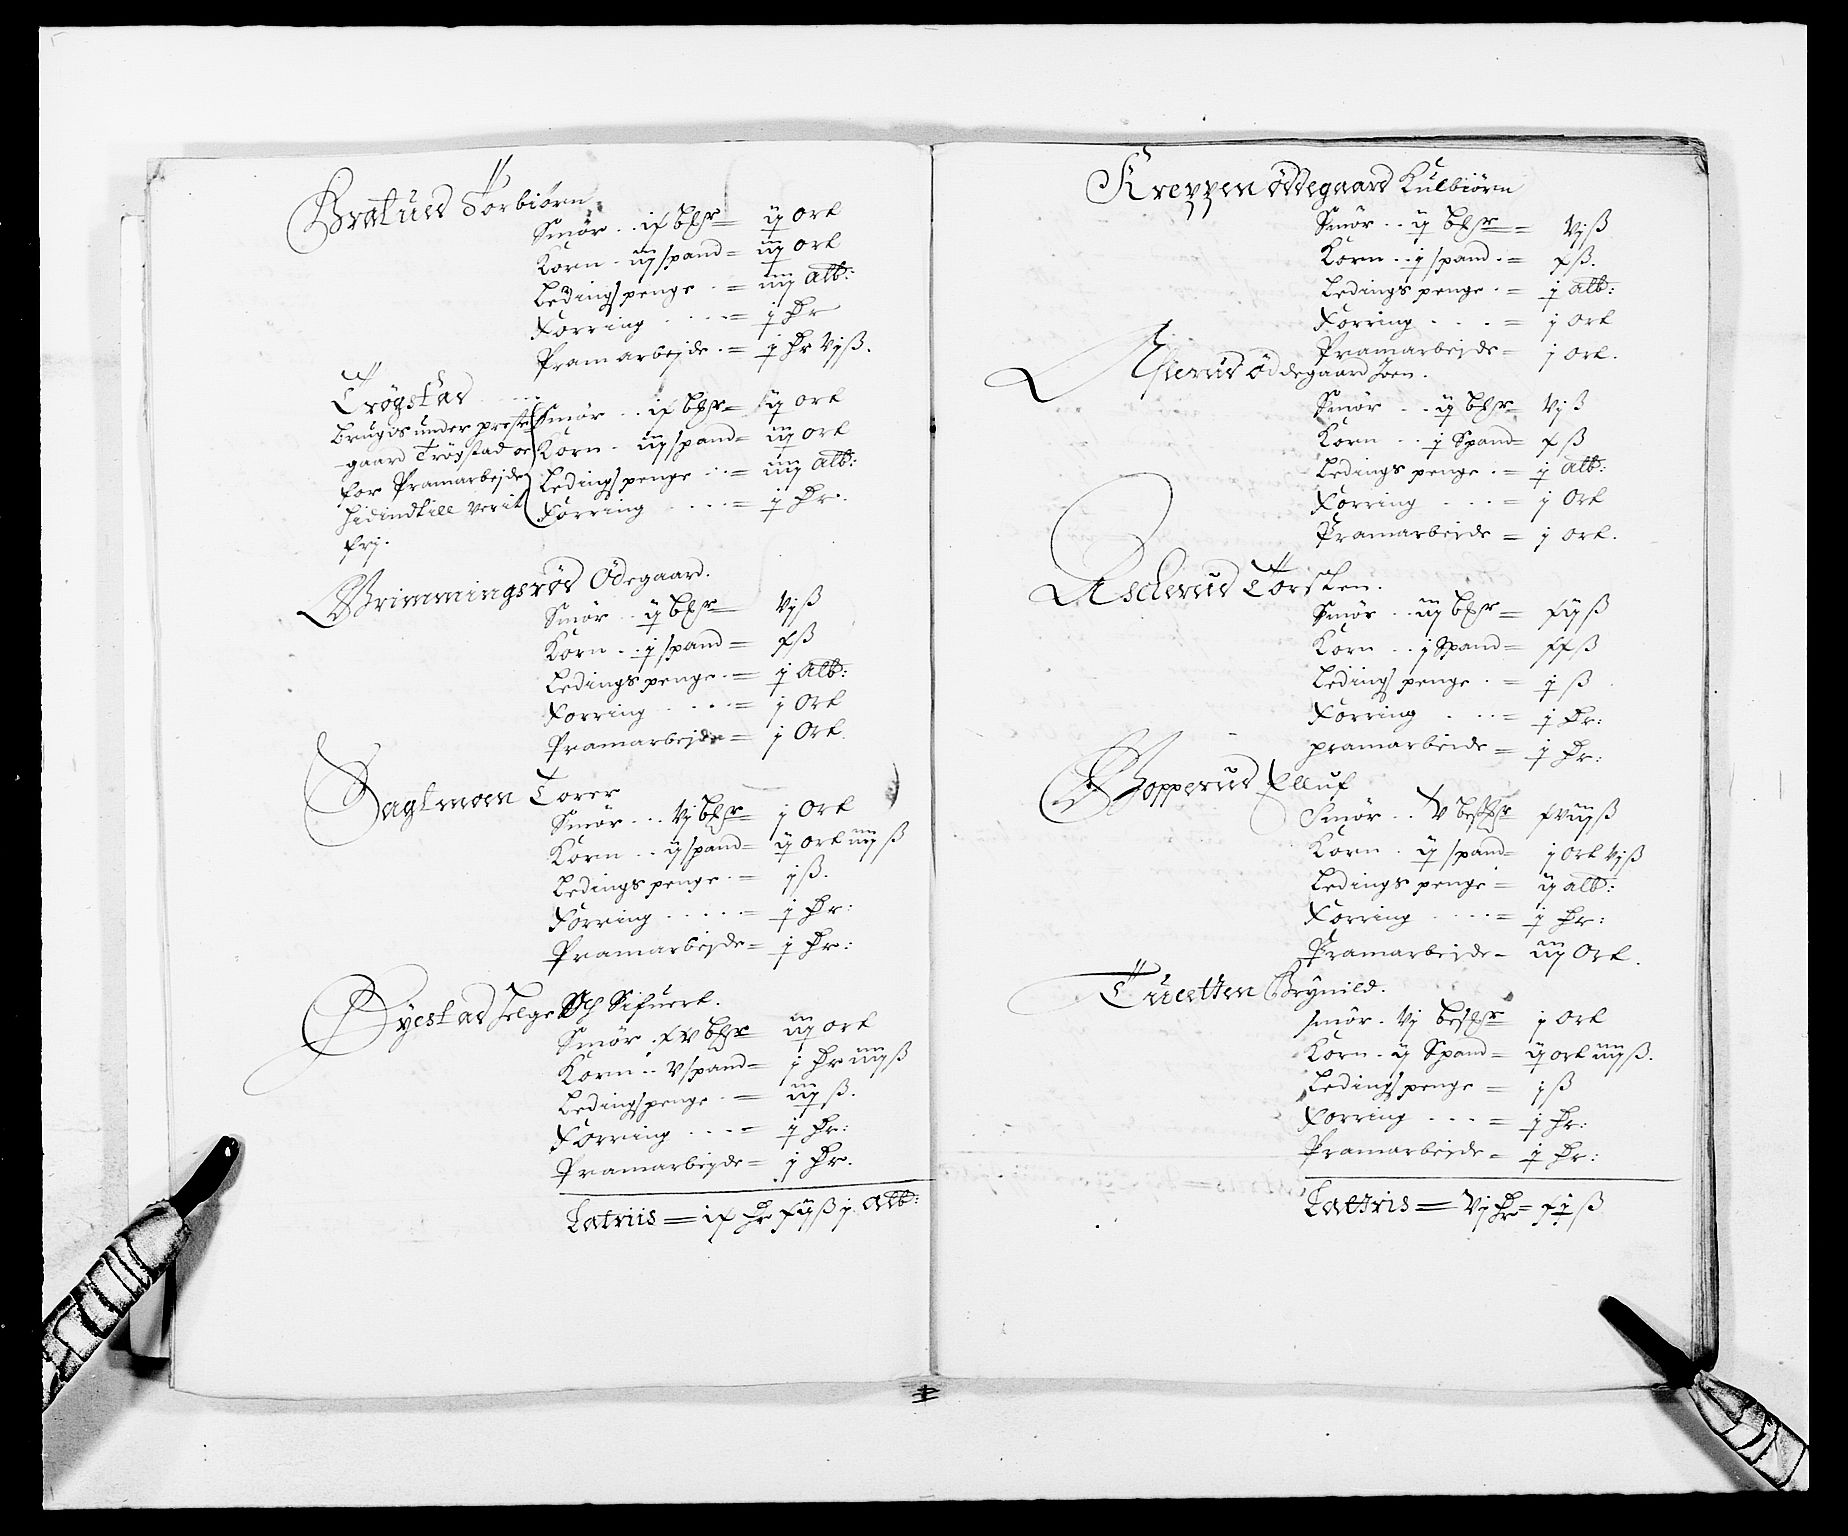 Bratued Torbiørn
Smør .. ix bßr = ij ort
Korn . iiij spand = iiij ort
Ledings penge . = iiiij alb:
Forring .... = j dr
Pramarbejde . = j dr vjß.
Trøgstad
brugis under prestegaard Trøgstad oc for Pramarbejde hidindtill verit frj.
Smør .. ix bßr = ij ort
Korn . iiij spand = iiij ort
Ledings penge .. = iiiij alb:
Forring .... = j dr.
Grimmingsrød Ødegaard.
Smør .. ij bßr = vjß
Korn .. j spand = xß
Ledings penge . = j alb:
Forring .... = j Ort
Pramarbejde = j Ort.
Sagtmoen Torer
Smør ... vj bßr = j Ort
Korn .. ij spand = ij ort iiijß
Ledings penge . = jß.
Forring ..... = j dr:
Pramarbejde = j dr:
Øyestad Helge Och Sifuert.
Smør . xv bßr = iij ort
Korn .. v spand = j dr iiijß
Ledingspenge . = iijß.
Forring .... = j dr:
Pramarbejde = j dr.
Latriis = ix dr xijß j alb:
Kreppen øddegaard Kulbiørn
Smør .. ij bßr = vjß
Korn .. j spand . = xß.
Ledings penge . = j alb:
Forring ... = j ort
Pramarbejde = j ort.
Øddegaard Joen.
Smør .. ij bßr = vjß
Korn .. j Spand = xß
Ledings penge . = j alb:
Forring ... = j Ort
Pramarbejde = j ort.
Asclerud Torsten.
Smør .. iij bßr = xijß
Korn .. j Spand = xxß
Ledings penge . = j ß
Forring ... = j dr:
pramarbeide = j dr:
Bopperud Elluf
Smør .. v bßr xviijß
Korn . ij spand = j ort vjß
Ledings penge = ij alb:
Forring .... = j dr:
Pramarbejde = iij Ort.
Tuetten Brynild.
smør . vj bßr j Ort
Korn . ij Spand = ij ort iiijß.
Ledings penge = jß
Forring ... = j dr:
Pramarbejde = j dr:
Lattris = vj dr = xjß